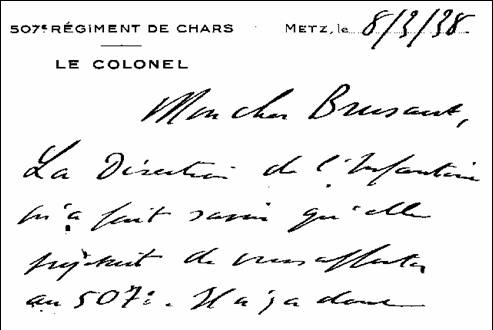 507e RÉGIMENT DE CHARS
METZ, le 8/3/38.
LE COLONEL
Mon cher
La Direction de l'Infanterie
m'a fait savoir qu'elle
projetait de vous affecter
au 507e. Il n'y a donc